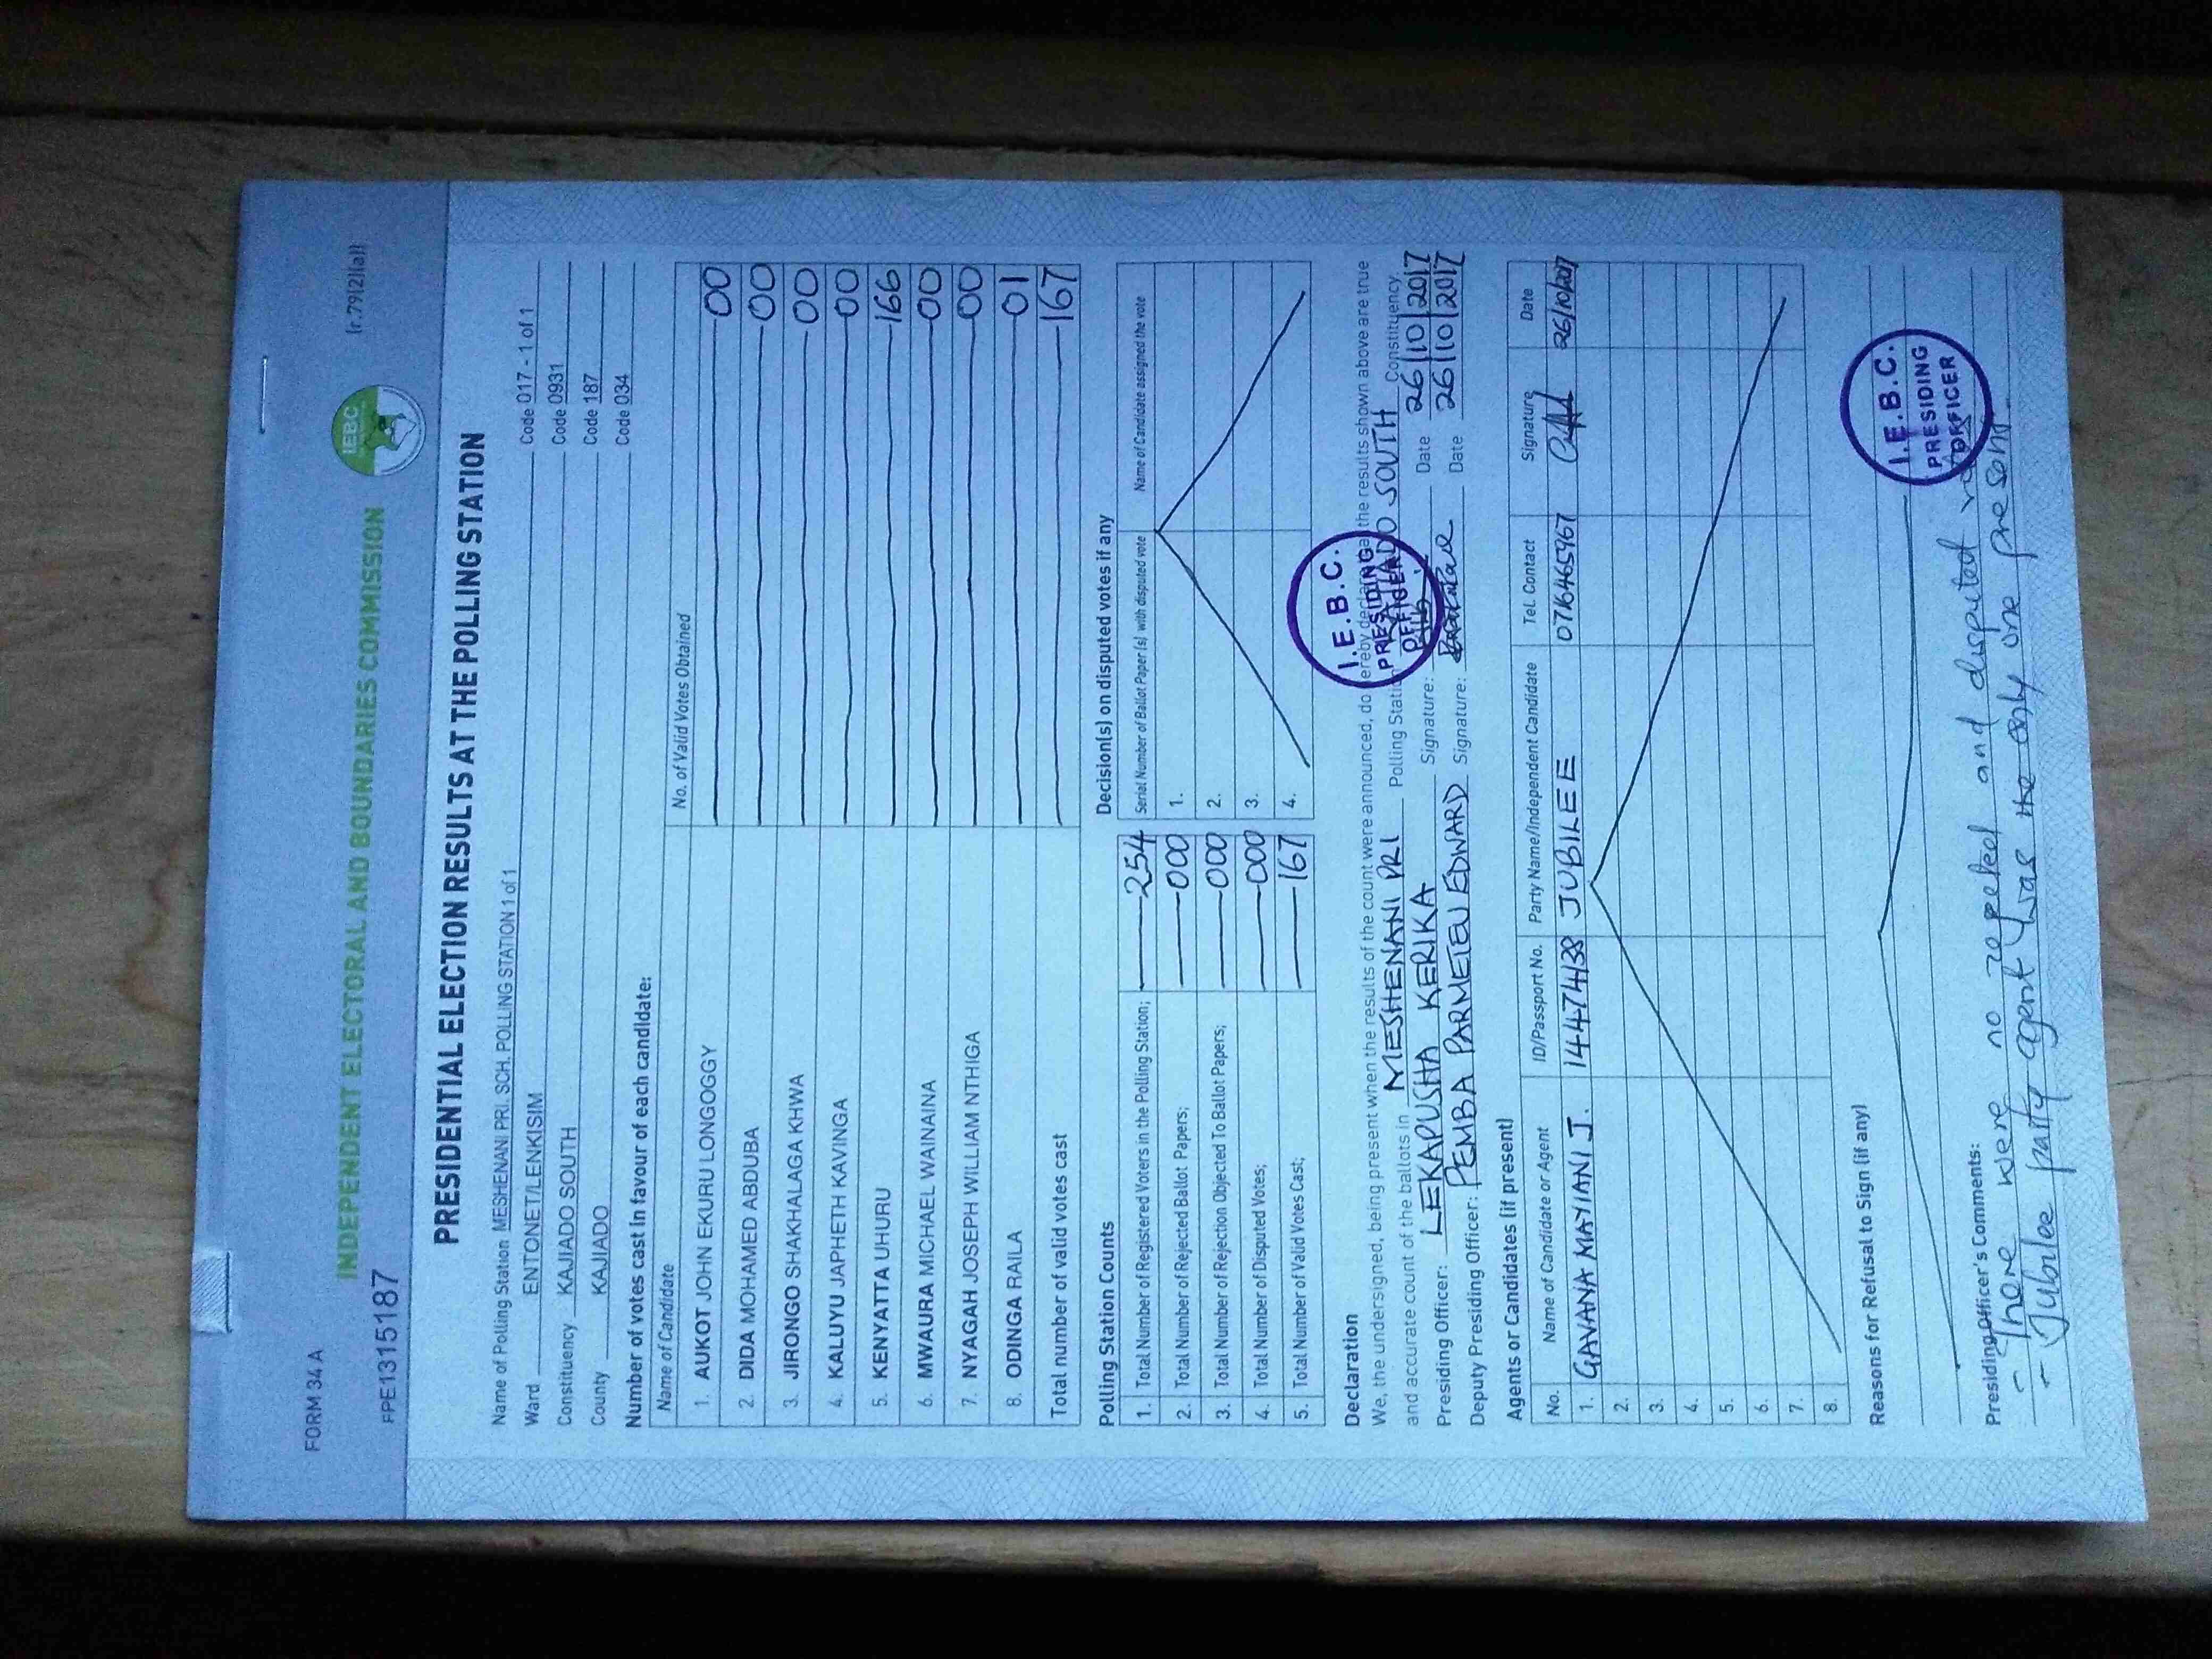 FORM 34 A
(r.79(2)(a))
IEBC
INDEPENDENT ELECTORAL AND BOUNDARIES COMMISSION
FPE1315187
PRESIDENTIAL ELECTION RESULTS AT THE POLLING STATION
Name of Polling Station MESHENANI PRI. SCH. POLLING STATION 1 of 1 Code 017 - 1 of 1
Ward ENTONET/LENKISIM Code 0931
Constituency KAJIADO SOUTH Code 187
County KAJIADO Code 034
Number of votes cast in favour of each candidate:
Name of Candidate No. of Valid Votes Obtained
1. AUKOT JOHN EKURU LONGOGGY 00
2. DIDA MOHAMED ABDUBA 00
3. JIRONGO SHAKHALAGA KHWA 00
4. KALUYU JAPHETH KAVINGA 00
5. KENYATTA UHURU 166
6. MWAURA MICHAEL WAINAINA 00
7. NYAGAH JOSEPH WILLIAM NTHIGA 00
8. ODINGA RAILA 01
Total number of valid votes cast 167
Polling Station Counts
1. Total Number of Registered Voters in the Polling Station; 254
2. Total Number of Rejected Ballot Papers; 000
3. Total Number of Rejection Objected To Ballot Papers; 000
4. Total Number of Disputed Votes; 000
5. Total Number of Valid Votes Cast; 167
Decision(s) on disputed votes if any
Serial Number of Ballot Paper(s) with disputed vote Name of Candidate assigned the vote
1.
2.
3.
4.
Declaration
We, the undersigned, being present when the results of the count were announced, do hereby declare that the results shown above are true
and accurate count of the ballots in MESHENANI PRI Polling Station KAJIADO SOUTH Constituency.
Presiding Officer: LEKAPUSHA KERIKA Signature: Date 26/10/2017
Deputy Presiding Officer: PEMBA PARMETEU EDWARD Signature: Date 26/10/2017
I.E.B.C.
PRESIDING
OFFICER
Agents or Candidates (if present)
No. Name of Candidate or Agent ID/Passport No. Party Name/Independent Candidate Tel. Contact Signature Date
1. GAVANA MAYIANI J. 14474138 JUBILEE 0716465967 26/10/2017
2.
3.
4.
5.
6.
7.
8.
Reasons for Refusal to Sign (if any)
I.E.B.C.
PRESIDING
OFFICER
Presiding Officer's Comments:
- There were no rejected and disputed
- Jubilee party agent was the only one present.